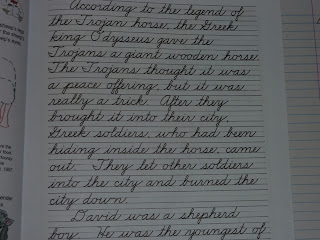 According to the legend of
the Trojan horse, the Greek
king Odysseus gave the
Trojans a giant wooden horse.
The Trojans thought it was
a peace offering, but it was
really a trick. After they
brought it into their city,
Greek soldiers, who had been
hiding inside the horse, came
out. They let other soldiers
into the city and burned the
city down.
David was a shepherd
boy. He was the youngest of